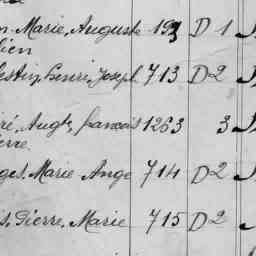 n Marie, Auguste 193 D 1
lien
lestin, Henri, Joseph 713 D 2
ré, Augte, francois 1263 3
erre
ges, Marie Ange 714 D 2
s, Pierre, Marie 715 D 2